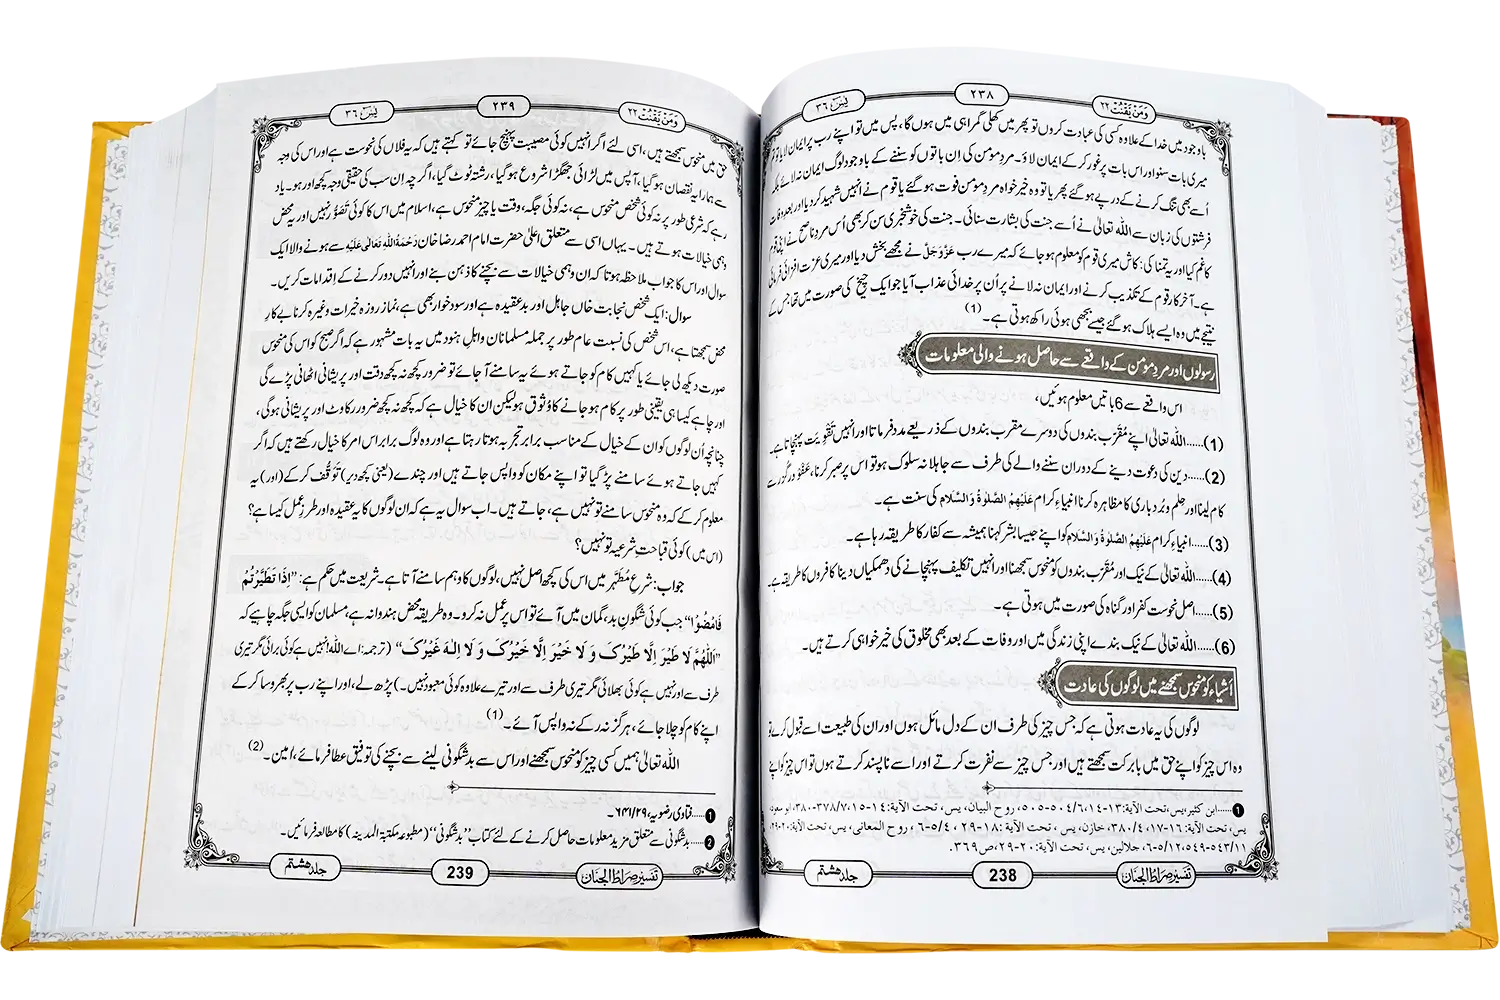 وَمَنْ یَّقْنُتْ ٢٢
٢٣٨
یٰسٓ ٣٦
باوجود میں خدا کے علاوہ کسی کی عبادت کروں تو پھر میں کھلی گمراہی میں ہوں گا، پس میں تو اپنے رب پر ایمان لایا تو تم
میری بات سنو اور اس بات پر غور کر کے ایمان لاؤ۔ مردِ مومن کی اِن باتوں کو سننے کے باوجود لوگ ایمان نہ لائے بلکہ
اُسے بھی تنگ کرنے کے درپے ہو گئے پھر یا تو وہ خیر خواہ مردِ مومن فوت ہو گئے یا قوم نے انہیں شہید کر دیا اور بعدِ وفات
فرشتوں کی زبان سے اللہ تعالیٰ نے اُسے جنت کی بشارت سنائی۔ جنت کی خوشخبری سن کر بھی اُس مردِ ناصح نے اپنی قوم
کا غم کیا اور یہ تمنا کی: کاش میری قوم کو معلوم ہو جائے کہ میرے رب عَزَّوَجَلَّ نے مجھے بخش دیا اور میری عزت افزائی فرمائی
ہے۔ آخر کار قوم کے تکذیب کرنے اور ایمان نہ لانے پر اُن پر خدائی عذاب آیا جو ایک چیخ کی صورت میں تھا جس کے
نتیجے میں وہ ایسے ہلاک ہو گئے جیسے بجھی ہوئی راکھ ہوتی ہے۔ (1)
رسولوں اور مردِ مومن کے واقعے سے حاصل ہونے والی معلومات
اس واقعے سے 6 باتیں معلوم ہوئیں،
(1)......اللہ تعالیٰ اپنے مُقَرَّب بندوں کی دوسرے مقرب بندوں کے ذریعے مدد فرماتا اور انہیں تَقْوِیَت پہنچاتا ہے۔
(2)......دین کی دعوت دینے کے دوران سننے والے کی طرف سے جاہلانہ سلوک ہو تو اس پر صبر کرنا، عَفْو و درگُزر سے
کام لینا اور حِلم و بُردباری کا مظاہرہ کرنا انبیاءِ کرام عَلَیْهِمُ الصَّلٰوةُ وَالسَّلَام کی سنت ہے۔
(3)......انبیاءِ کرام عَلَیْهِمُ الصَّلٰوةُ وَالسَّلَام کو اپنے جیسا بشر کہنا ہمیشہ سے کفار کا طریقہ رہا ہے۔
(4)......اللہ تعالیٰ کے نیک اور مُقَرَّب بندوں کو منحوس سمجھنا اور انہیں تکلیف پہنچانے کی دھمکیاں دینا کافروں کا طریقہ ہے۔
(5)......اصل نحوست کفر اور گناہ کی صورت میں ہوتی ہے۔
(6)......اللہ تعالیٰ کے نیک بندے اپنی زندگی میں اور وفات کے بعد بھی مخلوق کی خیر خواہی کرتے ہیں۔
اَشیاء کو منحوس سمجھنے میں لوگوں کی عادت
لوگوں کی یہ عادت ہوتی ہے کہ جس چیز کی طرف ان کے دل مائل ہوں اور ان کی طبیعت اسے قبول کرے تو
وہ اس چیز کو اپنے حق میں بابرکت سمجھتے ہیں اور جس چیز سے نفرت کرتے اور اسے ناپسند کرتے ہوں تو اس چیز کو اپنے
1......ابن کثیر، یس، تحت الآیۃ: ١٣-١٤، ٥٠٤/٦-٥٠٥، روح البیان، یس، تحت الآیۃ: ١٤-١٥، ٣٧٨/٧-٣٨٠، ابو سعود،
یس، تحت الآیۃ: ١٦-١٧، ٣٨٠/٤، خازن، یس، تحت الآیۃ: ١٨-٢٩، ٥/٤-٦، روح المعانی، یس، تحت الآیۃ: ٢٠-٢٩،
٥٤٣/١١-٥٤٩، ٥/١٢-٦، جلالین، یس، تحت الآیۃ: ٢٠-٢٩، ص ٣٦٩.
تفسیر صراط الجنان
238
جلد ہشتم
وَمَنْ یَّقْنُتْ ٢٢
٢٣٩
یٰسٓ ٣٦
حق میں منحوس سمجھتے ہیں، اسی لئے اگر انہیں کوئی مصیبت پہنچ جائے تو کہتے ہیں کہ یہ فلاں کی نحوست ہے اور اس کی وجہ
سے ہمارا یہ نقصان ہو گیا، آپس میں لڑائی جھگڑا شروع ہو گیا، رشتہ ٹوٹ گیا، اگرچہ اِن سب کی حقیقی وجہ کچھ اور ہو۔ یاد
رہے کہ شرعی طور پر نہ کوئی شخص منحوس ہے، نہ کوئی جگہ، وقت یا چیز منحوس ہے، اسلام میں اس کا کوئی تَصَوُّر نہیں اور یہ محض
وہمی خیالات ہوتے ہیں۔ یہاں اسی سے متعلق اعلیٰ حضرت امام احمد رضا خان رَحْمَةُ اللّٰهِ تَعَالٰی عَلَیْهِ سے ہونے والا ایک
سوال اور اس کا جواب ملاحظہ ہو تا کہ ان وہمی خیالات سے بچنے کا ذہن بنے اور انہیں دور کرنے کے اقدامات کریں۔
سوال: ایک شخص نجابت خاں جاہل اور بد عقیدہ ہے اور سود خوار بھی ہے، نماز روزہ خیرات وغیرہ کرنا بے کارِ
محض سمجھتا ہے، اس شخص کی نسبت عام طور پر جملہ مسلمانان و اہلِ ہنود میں یہ بات مشہور ہے کہ اگر صبح کو اس کی منحوس
صورت دیکھ لی جائے یا کہیں کام کو جاتے ہوئے یہ سامنے آ جائے تو ضرور کچھ نہ کچھ دقت اور پریشانی اٹھانی پڑے گی
اور چاہے کیسا ہی یقینی طور پر کام ہو جانے کا وُثوق ہو لیکن ان کا خیال ہے کہ کچھ نہ کچھ ضرور رکاوٹ اور پریشانی ہوگی،
چنانچہ اُن لوگوں کو ان کے خیال کے مناسب برابر تجربہ ہوتا رہتا ہے اور وہ لوگ برابر اس امر کا خیال رکھتے ہیں کہ اگر
کہیں جاتے ہوئے سامنے پڑ گیا تو اپنے مکان کو واپس جاتے ہیں اور چندے (یعنی کچھ دیر) تَوَقُّف کر کے (اور) یہ
معلوم کر کے کہ وہ منحوس سامنے تو نہیں ہے، جاتے ہیں۔ اب سوال یہ ہے کہ ان لوگوں کا یہ عقیدہ اور طرزِ عمل کیسا ہے؟
(اس میں) کوئی قباحتِ شرعیہ تو نہیں؟
جواب: شرعِ مُطَہَّر میں اس کی کچھ اصل نہیں، لوگوں کا وہم سامنے آتا ہے۔ شریعت میں حکم ہے: ”اِذَا تَطَیَّرْتُمْ
فَامْضُوْا“ جب کوئی شگونِ بد، گمان میں آئے تو اس پر عمل نہ کرو۔ وہ طریقہ محض ہندوانہ ہے، مسلمان کو ایسی جگہ چاہئے کہ
”اَللّٰهُمَّ لَا طَیْرَ اِلَّا طَیْرُكَ وَ لَا خَیْرَ اِلَّا خَیْرُكَ وَ لَا اِلٰهَ غَیْرُكَ“ (ترجمہ: اے اللہ! نہیں ہے کوئی برائی مگر تیری
طرف سے اور نہیں ہے کوئی بھلائی مگر تیری طرف سے اور تیرے علاوہ کوئی معبود نہیں۔) پڑھ لے، اور اپنے رب پر بھروسا کر کے
اپنے کام کو چلا جائے، ہرگز نہ رکے نہ واپس آئے۔ (1)
اللہ تعالیٰ ہمیں کسی چیز کو منحوس سمجھنے اور اس سے بد شگونی لینے سے بچنے کی توفیق عطا فرمائے، امین۔ (2)
1......فتاوی رضویہ، ٢٩/٦٤١۔
2......بد شگونی سے متعلق مزید معلومات حاصل کرنے کے لئے کتاب ”بد شگونی“ (مطبوعہ مکتبۃ المدینہ) کا مطالعہ فرمائیں۔
تفسیر صراط الجنان
239
جلد ہشتم